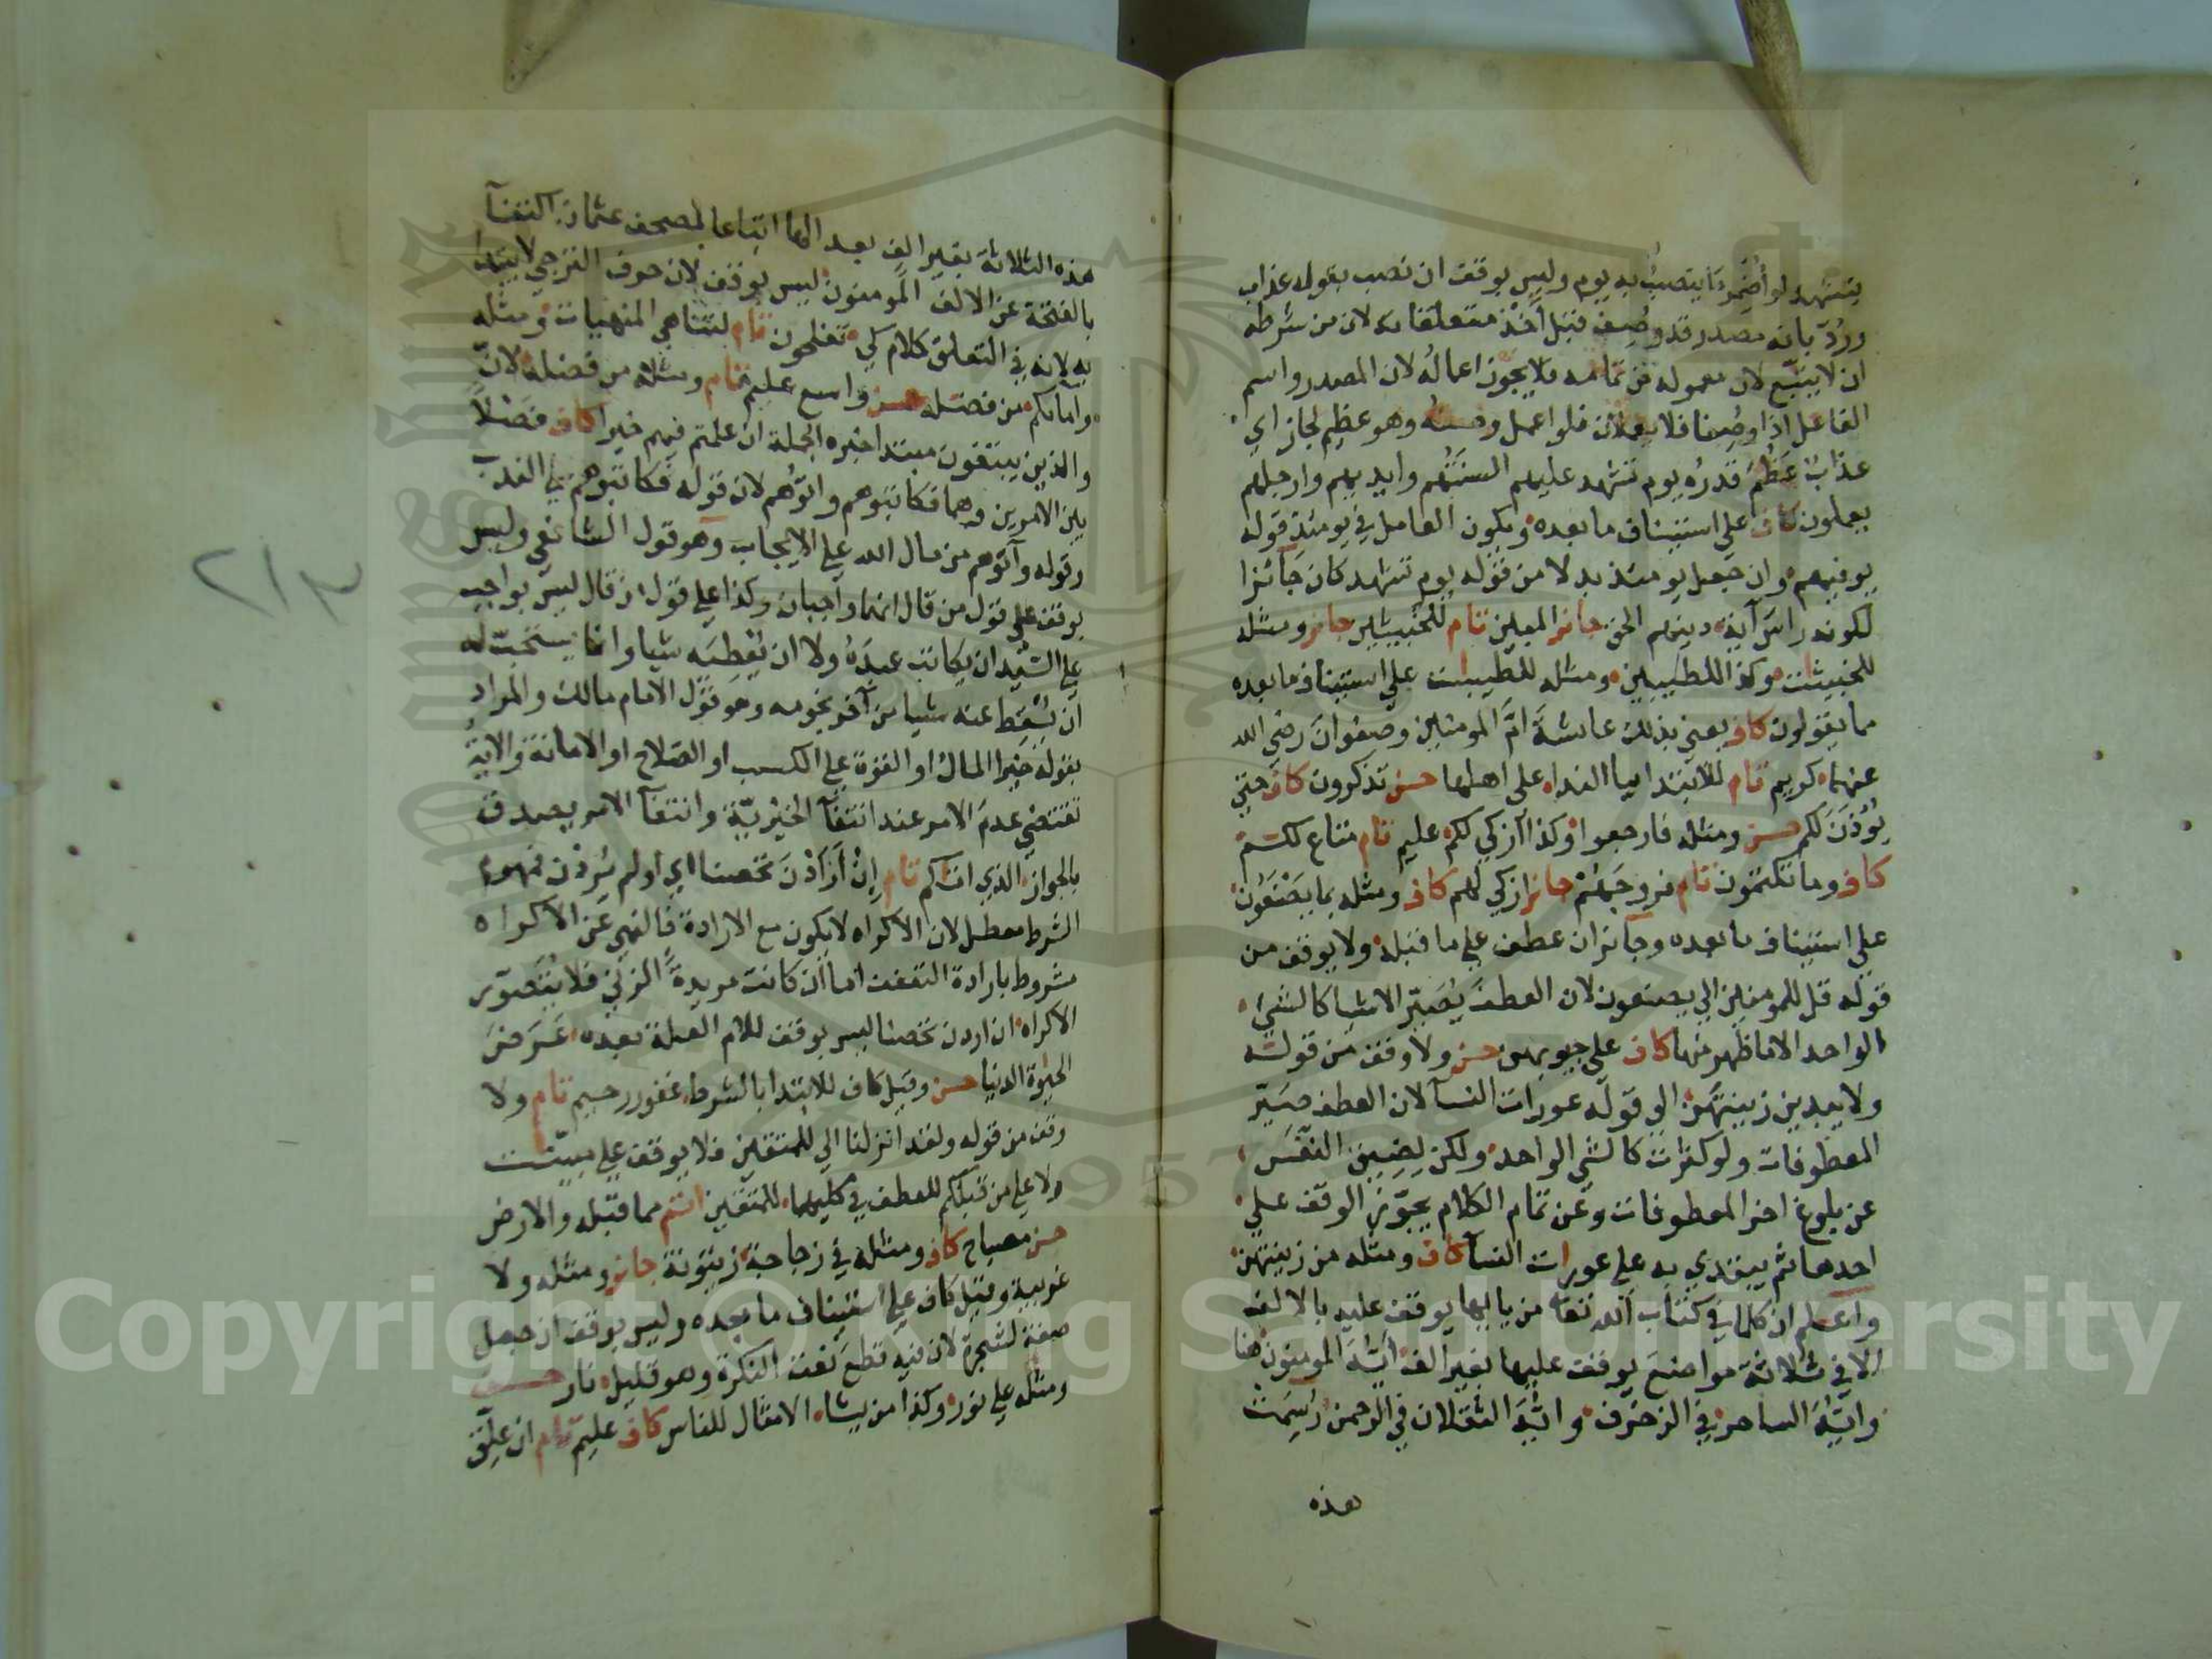 يتشهد لو أضمر ما ينتصب به يوم وليس بوقف ان نصب بقوله عذاب
وردّ بانه مصدر قد وصف قبل أخذ متعلقاته لان من شرطه
ان لا يتبع لان معموله من تمامه فلا يجوز اعماله لان المصدر واسم
الفاعل اذا وصفا فلا يعملان فلو اعمل وصفه وهو عظيم لجاز اي
عذاب عظم قدره يوم تشهد عليهم السنتهم وايديهم وارجلهم
يعملون كاف على استيناف ما بعده ويكون العامل في يومئذ قوله
يوفيهم وان جعل يومئذ بدلا من قوله يوم تشهد كان جائزا
لكونه راس آية دينهم الحق جائز المبين تام للخبيثين جائز ومثله
للخبيثت وكذا للطيبين ومثله للطيبت على استيناف ما بعده
مما يقولون كاف يعني بذلك عائشة امّ المومنين وصفوان رضي الله
عنهما كريم تام للابتدا بيا الندا على اهلها حسن تذكرون كاف حتى
يؤذن لكم حسن ومثله فارجعوا وكذا ازكى لكم عليم تام متاع لكم
كاف وما تكتمون تام فروجهم جائز ازكى لهم كاف ومثله بما يصنعون
على استيناف ما بعده وجائز ان عطف على ما قبله ولا يوقف من
قوله قل للمومنين الى يصنعون لان العطف يصيّر الاشيا كالشيء
الواحد الا ما ظهر منها كاف على جيوبهن حسن ولا وقف من قوله
ولا يبدين زينتهن الى قوله عورات النسآ لان العطف صيّر
المعطوفات ولو كثرت كالشي الواحد ولكن لضيق النفس
عن بلوغ اخر المعطوفات وعن تمام الكلام يجوّز الوقف على
احدها ثم يبتدي به على عورات النسآ كاف ومثله من زينتهن
واعلم ان كلما في كتاب الله تعالى من يا ايها يوقف عليه بالالف
الا في ثلاثة مواضع يوقف عليها بغير الف ايّه المومنون هنا
وايّه الساحر في الزخرف وايّه الثقلان في الرحمن رسمت
هذه
هذه الثلاثة بغير الف بعد الها اتباعا لمصحف عثمان اكتفآ
بالفتحة عن الالف المومنون ليس بوقف لان حرف الترجي لا يبتدا
به لانه في التعلق كلام كي تفلحون تام لتناهي المنهيات ومثله
وامائكم من فضله حسن واسع عليم تام ومثله من فضله لانّ
والذين يبتغون مبتدا خبره الجملة ان علمتم فيهم خيرا كاف فصلا
بين الامرين وهما فكاتبوهم واتوهم لان قوله فكاتبوهم على الندب
وقوله وآتوهم من مال الله على الايجاب وهو قول الشافعي وليس
بوقف على قول من قال انهما واجبان وكذا على قول من قال ليس بواجب
على السيد ان يكاتب عبده ولا ان يعطيه شيا وانما يستحبّ له
ان يسقط عنه شيا من آخر نجومه وهو قول الامام مالك والمراد
بقوله خيرا المال او القوة على الكسب او الصلاح او الامانة والاية
تقتضي عدم الامر عند انتفآ الخيرية وانتفآ الامر يصدق
بالجواز الذي اتاكم تام إن أردن تحصنا اي او لم يردن فمفهوم
الشرط معطل لان الاكراه لا يكون مع الارادة فالنهي عن الاكراه
مشروط بارادة التعفف اما ان كانت مريدة الزنى فلا يتصوّر
الاكراه ان اردن تحصنا ليس بوقف للام العلة بعده عرض
الحيوة الدنيا حسن وقيل كاف للابتدا بالشرط غفور رحيم تام ولا
وقف من قوله ولقد انزلنا الى للمتقين فلا يوقف على مبيّنت
ولا على من قبلكم للعطف في كليهما للمتقين اتم مما قبله والارض
حسن مصباح كاف ومثله في زجاجة زيتونة جائز ومثله ولا
غربية وقيل كاف على استيناف ما بعده وليس بوقف ان جعل
صفة لشجرة لان فيه قطع نعت النكرة وهو قليل نار حسن
ومثله على نور وكذا من يشاء الامثال للناس كاف عليم تام ان علق
٢١٣
Copyright © King Saud University
1957